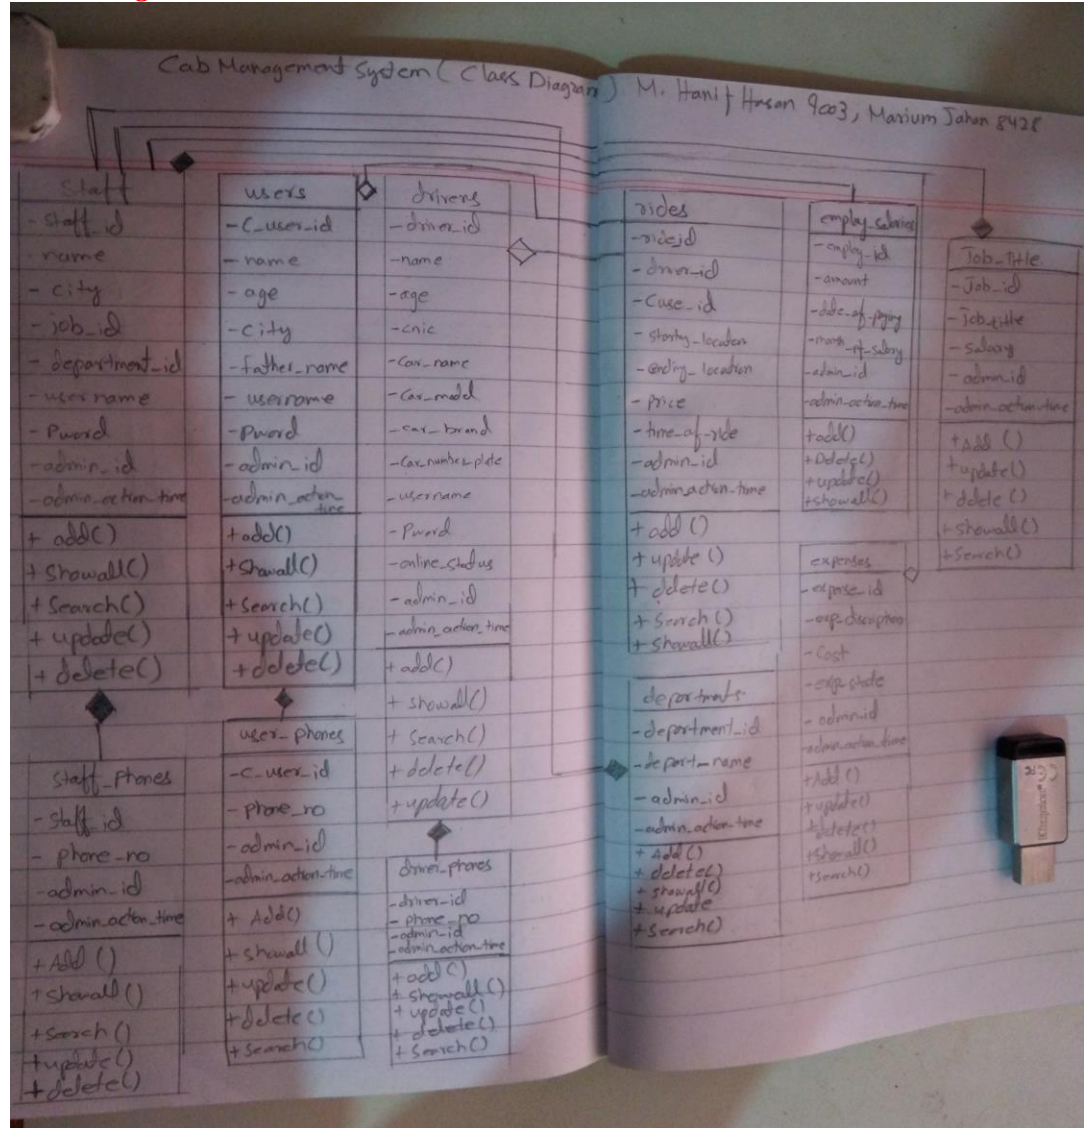 Cab Management System ( Class Diagram ) M. Hanif Hasan 9003, Marium Jahan 8428
Staff
- staff_id
- name
- city
- job_id
- department_id
- username
- Pword
- admin_id
- admin_action_time
+ add()
+ Showall()
+ Search()
+ update()
+ delete()
staff_phones
- staff_id
- phone_no
- admin_id
- admin_action_time
+ Add ()
+ Showall ()
+ Search ()
+ update()
+ delete()
users
- C_user_id
- name
- age
- City
- father_name
- username
- Pword
- admin_id
- admin_action_time
+ add()
+ Showall()
+ Search()
+ update()
+ delete()
user_phones
- C_user_id
- phone_no
- admin_id
- admin_action_time
+ Add()
+ Showall ()
+ update()
+ delete()
+ Search()
drivers
- driver_id
- name
- age
- cnic
- Car_name
- Car_model
- car_brand
- Car_number_plate
- username
- Pword
- online_status
- admin_id
- admin_action_time
+ add()
+ showall()
+ Search()
+ delete()
+ update()
driver_phones
- driver_id
- phone_no
- admin_id
- admin_action_time
+ add ()
+ Showall()
+ update()
+ delete()
+ Search()
rides
- ride_id
- driver_id
- Cuse_id
- starting_location
- ending_location
- Price
- time_of_ride
- admin_id
- admin_action_time
+ add ()
+ update ()
+ delete()
+ Search()
+ Showall()
departments
- department_id
- depart_name
- admin_id
- admin_action_time
+ Add()
+ delete()
+ showall()
+ update
+ Search()
employ_salaries
- employ_id
- amount
- date_of_paying
- month_of_salary
- admin_id
- admin_action_time
+ add()
+ Delete()
+ update()
+ showall()
expenses
- expense_id
- Cost
- admin_id
- admin_action_time
+ Add()
+ update()
+ delete()
+ Showall()
+ Search()
Job_Title
- Job_id
- job_title
- Salary
- admin_id
- admin_action_time
+ Add ()
+ update()
+ delete ()
+ Showall()
+ Search()
Kingston